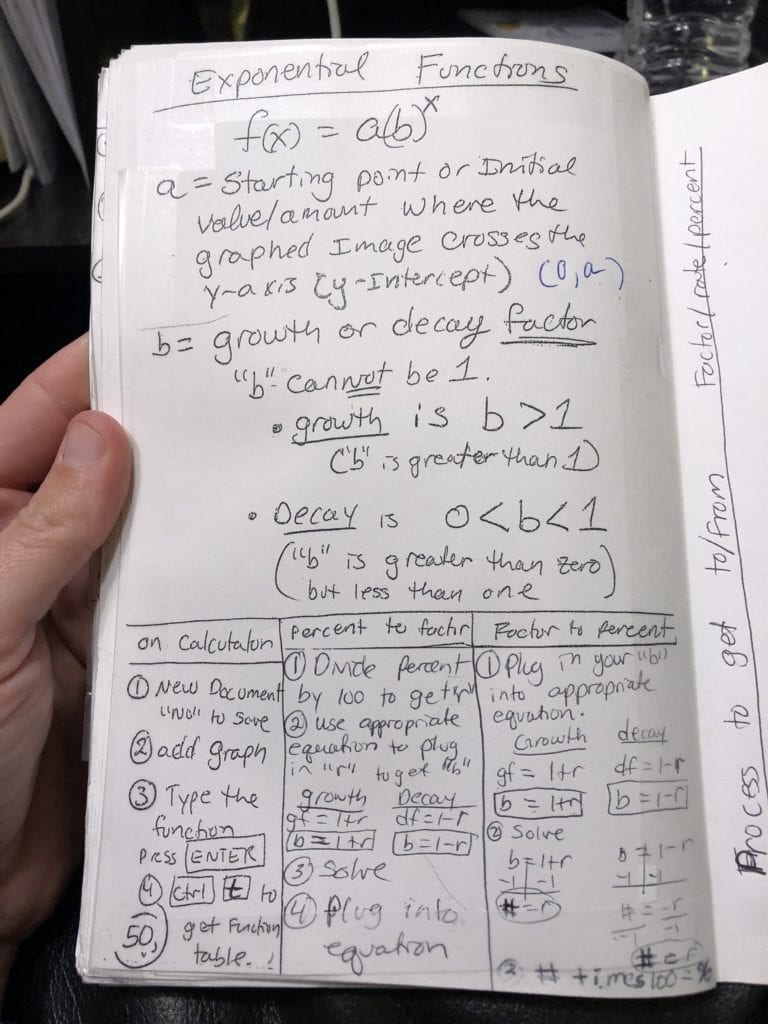 Exponential Functions
f(x) = a(b)^x
a = Starting point or Initial
value/amount where the
graphed Image crosses the
y-axis (y-Intercept) (0,a)
b = growth or decay factor
"b" cannot be 1.
• growth is b > 1
("b" is greater than 1)
• Decay is 0<b<1
("b" is greater than zero)
but less than one
on Calculator
① New Document
"No" to Save
② add graph
③ Type the
function
Press ENTER
④ ctrl t to
get Function
table.
50
percent to factor
① Divide Percent
by 100 to get "r"
② use appropriate
equation to plug
in "r" to get "b"
growth Decay
gf = 1+r df = 1-r
b = 1+r b = 1-r
③ Solve
④ Plug into
equation
Factor to Percent
① Plug in your "b"
into appropriate
equation.
Growth decay
gf = 1+r df = 1-r
b = 1+r b = 1-r
② Solve
b = 1+r b = 1-r
-1 -1 -1 -1
# = r # = -r
-1 -1
# = r
③ # times 100 = %
Process to get to/from Factor/rate/percent